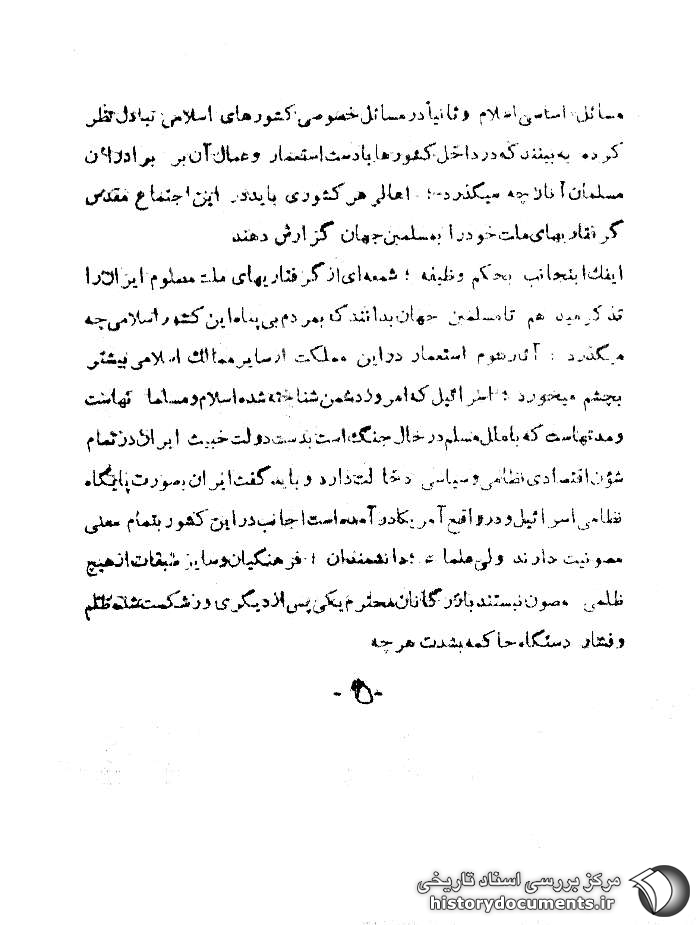 مسائل اساسی اسلام وثانیاً در مسائل خصوصی کشورهای اسلامی تبادل نظر
کرده به بینند که در داخل کشورها بادست استعمار وعمال آن بر برادران
مسلمان آنان چه میگذرد اهالی هر کشوری باید در این اجتماع مقدس
گرفتاریهای ملت خود را به مسلمین جهان گزارش دهند
اینک اینجانب بحکم وظیفه شمه‌ای از گرفتاریهای ملت مظلوم ایران را
تذکر میدهم تا مسلمین جهان بدانند که بمردم بی پناه این کشور اسلامی چه
میگذرد : آثار شوم استعمار در این مملکت از سایر ممالک اسلامی بیشتر
بچشم میخورد اسرائیل که امروز دشمن شناخته شده اسلام و مسلمانهاست
ومدتهاست که با ملل مسلم در حال جنگ است بدست دولت خبیث ایران در تمام
شؤن اقتصادی نظامی و سیاسی دخالت دارد و باید گفت ایران بصورت پایگاه
نظامی اسرائیل و در واقع آمریکا در آمده است اجانب در این کشور بتمام معنی
مصونیت دارند ولی علماء دانشمندان فرهنگیان و سایر طبقات از هیچ
ظلمی مصون نیستند بازرگانان محترم یکی پس از دیگری ورشکست شده ظلم
وفشار دستگاه حاکمه بشدت هر چه
مرکز بررسی اسناد تاریخی
historydocuments.ir